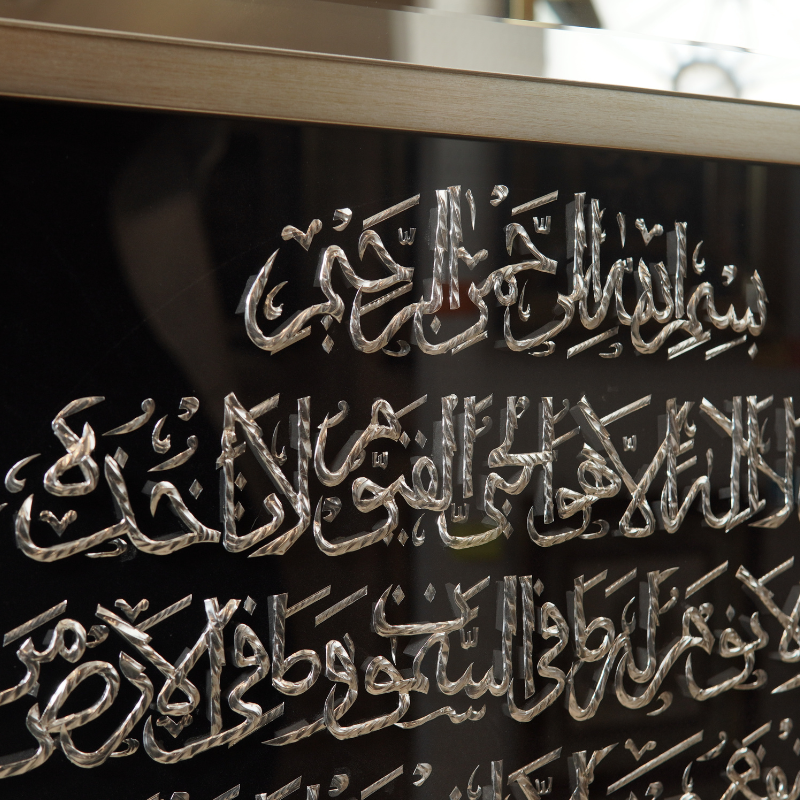 بِسْمِ اللهِ الرَّحْمٰنِ الرَّحِيْمِ
لَا اِلٰهَ اِلَّا هُوَ الْحَيُّ الْقَيُّوْمُ لَا تَاْخُذُهٗ
لَا نَوْمٌ لَهٗ مَا فِي السَّمٰوٰتِ وَمَا فِي الْاَرْضِ مَنْ